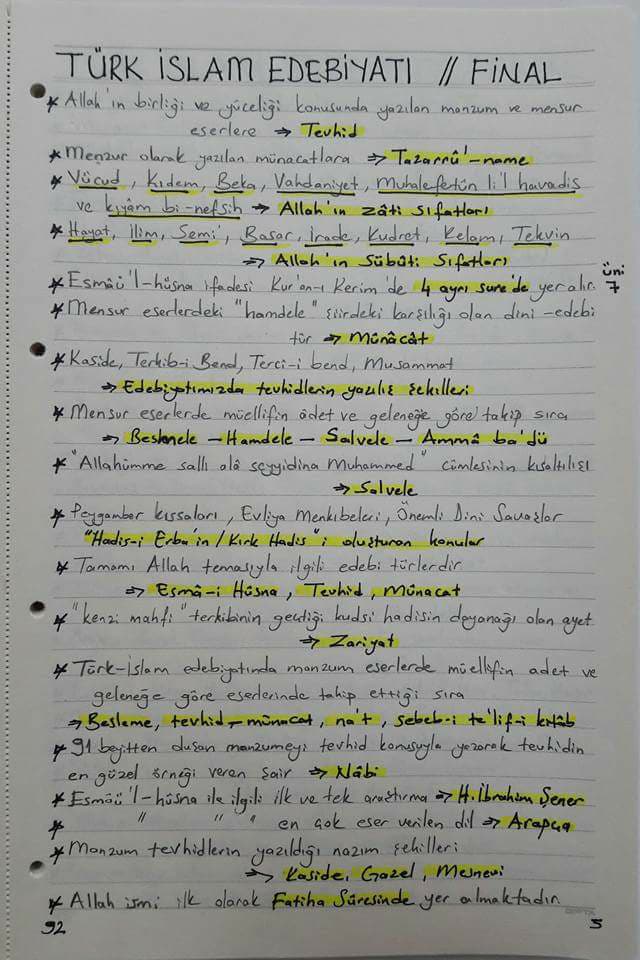 TÜRK İSLAM EDEBİYATI // FİNAL
* Allah'ın birliği ve yüceliği konusunda yazılan manzum ve mensur
eserlere ⇒ Tevhid
* Menzur olarak yazılan münacatlara ⇒ Tazarrû'-name
* Vücud, Kıdem, Beka, Vahdaniyet, Muhalefertün li'l havadis
ve kıyâm bi-nefsih ⇒ Allah'ın zâti sıfatları
* Hayat, ilim, Semi', Basar, İrade, Kudret, Kelam, Tekvin
⇒ Allah'ın Sübûti Sıfatları
* Esmâü'l-hüsna ifadesi Kur'an-ı Kerim'de 4 ayrı sure'de yer alır.
üni
7
* Mensur eserlerdeki "hamdele" şiirdeki karşılığı olan dini-edebi
tür ⇒ Münâcât
* Kaside, Terkib-i Bend, Terci-i bend, Musammat
⇒ Edebiyatımızda tevhidlerin yazılış şekilleri
* Mensur eserlerde müellifin âdet ve geleneğe göre takip sıra
⇒ Besmele - Hamdele - Salvele - Ammâ ba'dü
* "Allahümme sallı alâ seyyidina Muhammed" cümlesinin kısaltılışı
⇒ Salvele
* Peygamber kıssaları, Evliya Menkıbeleri, Önemli Dini Savaşlar
"Hadis-i Erba'in / Kırk Hadis"i oluşturan konular
* Tamamı Allah temasıyla ilgili edebi türlerdir
⇒ Esmâ-i Hüsna, Tevhid, Münacat
* "kenzi mahfi" terkibinin geçdiği kudsi hadisin dayanağı olan ayet
⇒ Zariyat
* Türk-İslam edebiyatında manzum eserlerde müellifin adet ve
geleneğe göre eserlerinde takip ettiği sıra
⇒ Besleme, tevhid-münacat, na't, sebeb-i te'lif-i kitâb
* 91 beyitten duşan manzumeyi tevhid konusuyla yazarak tevhidin
en güzel örneği veren şair ⇒ Nâbi
* Esmâü'l-hüsna ile ilgili ilk ve tek araştırma ⇒ H. İbrahim Şener
* " " " en çok eser verilen dil ⇒ Arapça
* Manzum tevhidlerin yazıldığı nazım şekilleri
⇒ Kaside, Gazel, Mesnevi
* Allah ismi ilk olarak Fatiha Sûresinde yer almaktadır.
92
5